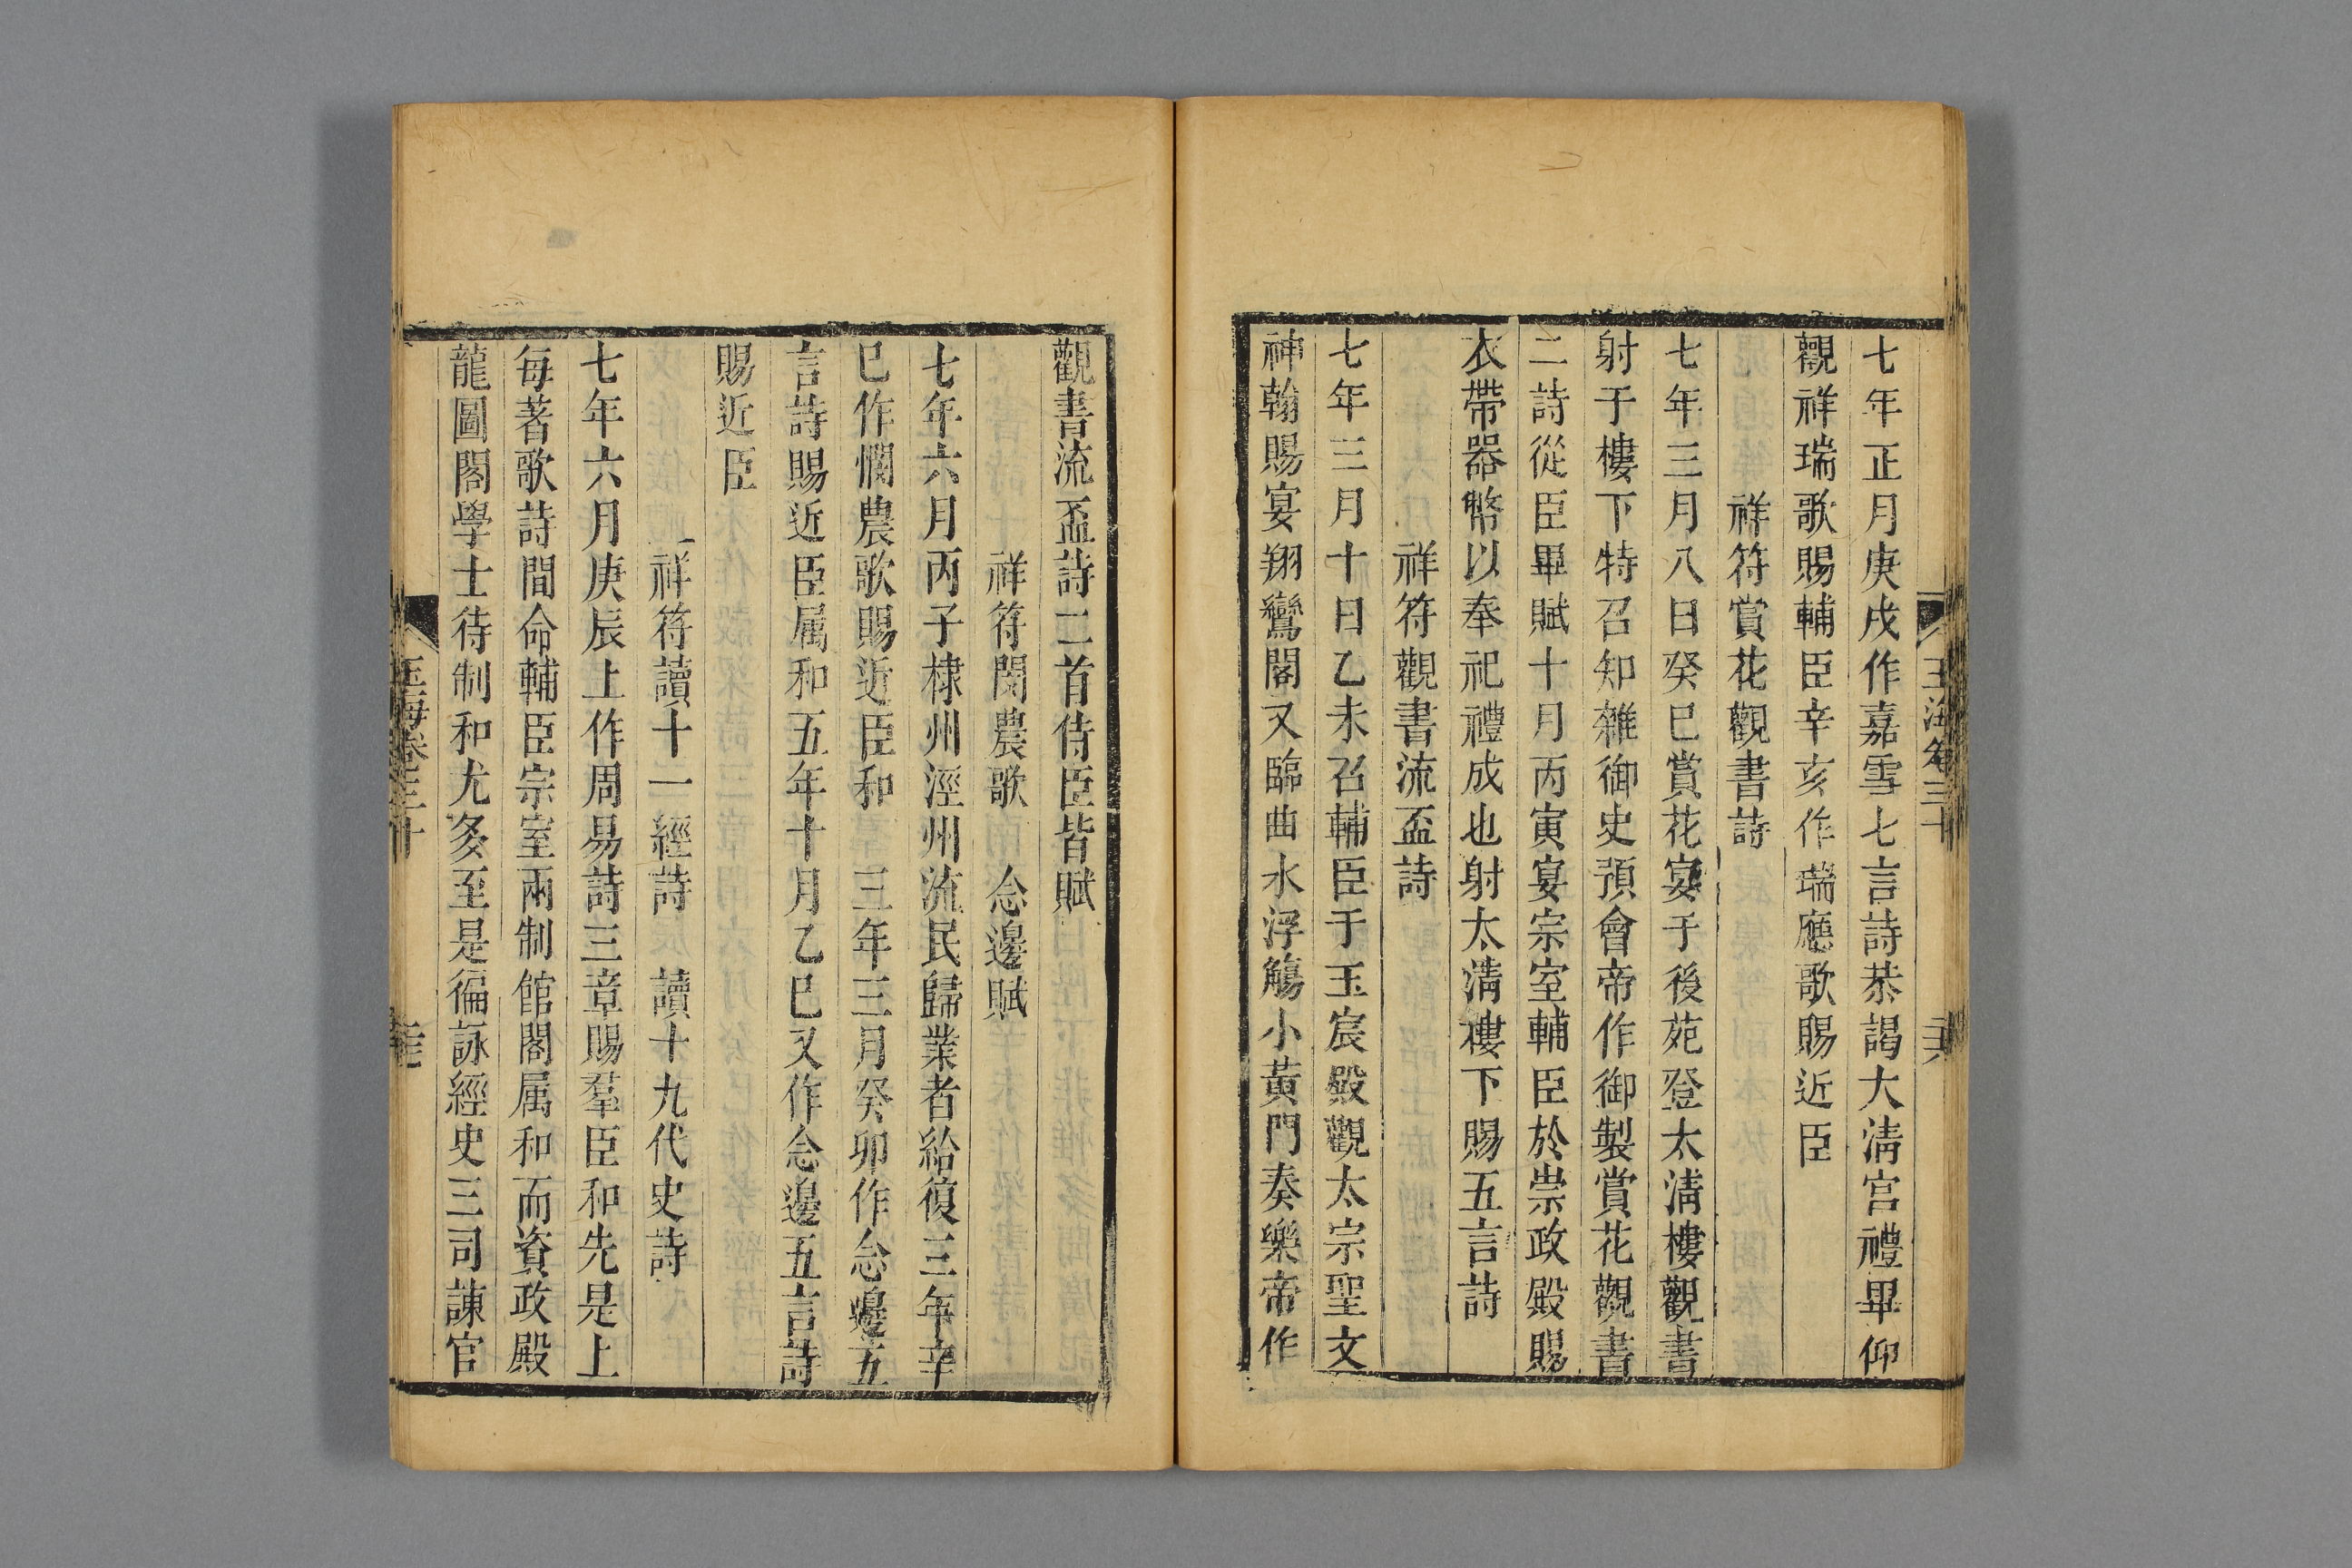 玉海卷三十
七年正月庚戌作嘉雪七言詩恭謁大清宮禮畢仰
觀祥瑞歌賜輔臣辛亥作瑞應歌賜近臣
祥符賞花觀書詩
七年三月八日癸巳賞花宴于後苑登太清樓觀書
射于樓下特召知雜御史預會帝作御製賞花觀書
二詩從臣畢賦十月丙寅宴宗室輔臣於崇政殿賜
衣帶器幣以奉祀禮成也射太清樓下賜五言詩
祥符觀書流盃詩
七年三月十日乙未召輔臣于玉宸殿觀太宗聖文
神翰賜宴翔鸞閣又臨曲水浮觴小黃門奏樂帝作
觀書流盃詩二首侍臣皆賦
祥符閔農歌 念邊賦
七年六月丙子棣州滛州流民歸業者給復三年辛
巳作憫農歌賜近臣和 三年三月癸卯作念邊五
言詩賜近臣属和五年十月乙巳又作念邊五言詩
賜近臣
祥符讀十一經詩 讀十九代史詩
七年六月庚辰上作周易詩三章賜羣臣和先是上
每著歌詩間命輔臣宗室兩制館閣属和而資政殿
龍圖閣學士待制和尤多至是徧詠經史三司諫官
玉海卷三十